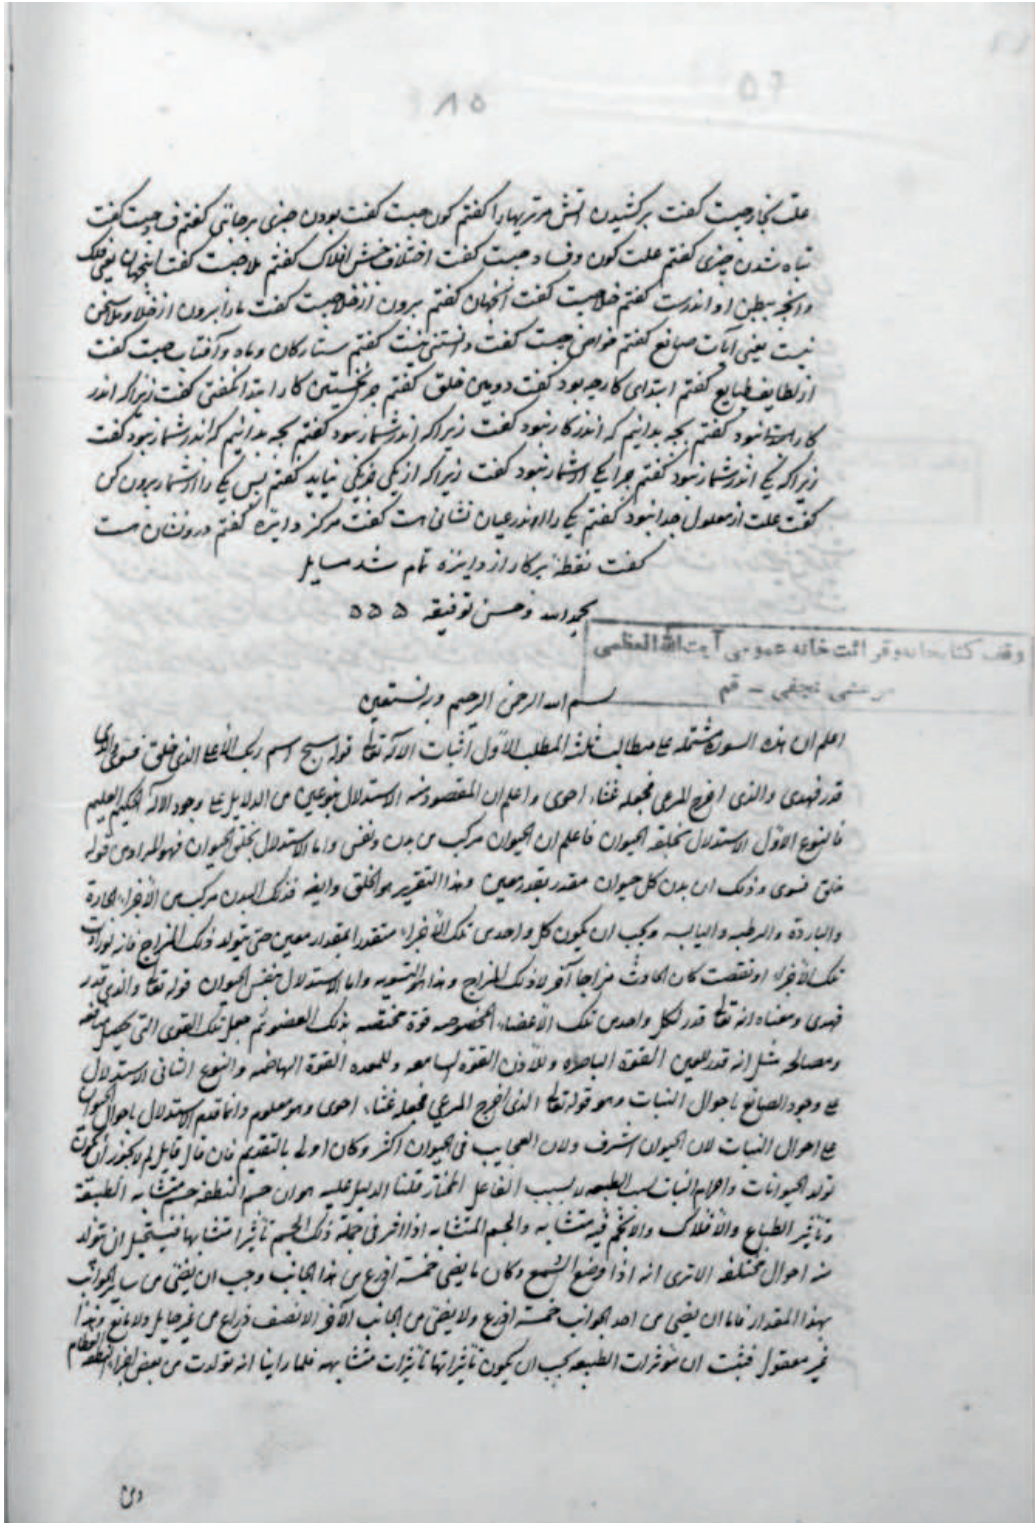 ۵۸
علت بخار چیست گفت برکشیدن آتش مر تریها را گفتم کون چیست گفت بودن چیزی برجائی گفتم فساد چیست گفت
تباه شدن چیزی گفتم علت کون و فساد چیست گفت اختلاف جنبش افلاک گفتم ملا چیست گفت اینجهان یعنی فلک
وانچه ببطن او اندرست گفتم خلا چیست گفت آنجهان گفتم بیرون از خلا چیست گفت ما را بیرون از خلا و ملا سخن
نیست یعنی آیات صانع گفتم خواص چیست گفت دانستنی نیست گفتم ستارگان و ماه و آفتاب چیست گفت
از لطایف طبایع گفتم ابتدای کار چه بود گفت دومین خلق گفتم چرا نخستین کار را ابتدا نگفتی گفت زیرا که اندر
کار ابتدا نبود گفتم بچه بدانیم که اندر کار نبود گفت زیرا که اندر شمار نبود گفتم بچه بدانیم که اندر شمار نبود گفت
زیرا که یکی اندر شمار نبود گفتم چرا یکی اندر شمار نبود گفت زیرا که از یکی جز یکی نیاید گفتم پس یکی را از شمار بیرون کن
گفت علت از معلول جدا نبود گفتم یکی را اندر عیان نشانی هست گفت مرکز دایره گفتم درو نشان هست
گفت نقطه پرکار از دایره تمام شد مسایل
بحمد الله و حسن توفیقه
وقف کتابخانه و قرائت خانه عمومی آیت الله العظمی
مرعشی نجفی - قم
بسم الله الرحمن الرحیم وبه نستعین
اعلم ان هذه السورة مشتملة علی مطالب ثلثة المطلب الاول اثبات الاله تعالی قوله سبح اسم ربک الاعلی الذی خلق فسوی والذی
قدر فهدی والذی اخرج المرعی فجعله غثاء احوی واعلم ان المقصود منه الاستدلال بنوعین من الدلایل علی وجود الاله الحکیم العلیم
فالنوع الاول الاستدلال بخلقة الحیوان فاعلم ان الحیوان مرکب من بدن ونفس واما الاستدلال بخلق الحیوان فهو المراد من قوله
خلق فسوی وذلک ان بدن کل حیوان مقدر بقدر معین وهذا التقریر هو الخلق وایضا فذلک البدن مرکب من الاجزاء الحارة
والباردة والرطبة والیابسة ویجب ان یکون کل واحد من تلک الاجزاء متقدرا بمقدار معین حتی یتولد ذلک المزاج فانه لو زادت
تلک الاجزاء او نقصت کان الحادث مزاجا آخر لا ذلک المزاج وهذا هو التسویه واما الاستدلال بنفس الحیوان قوله تعالی والذی قدر
فهدی ومعناه انه تعالی قدر لکل واحد من تلک الاعضاء المخصوصه قوة مختصة بذلک العضو ثم جعل تلک القوی التی یحصل منافعه
ومصالحه مثل انه قدر للعین القوة الباصرة وللاذن القوة السامعه وللمعده القوة الهاضمه والنوع الثانی الاستدلال
علی وجود الصانع باحوال النبات وهو قوله تعالی الذی اخرج المرعی فجعله غثاء احوی وهو معلوم وانما قدم الاستدلال باحوال الحیوان
علی احوال النبات لان الحیوان اشرف ولان العجایب فی الحیوان اکثر وکان اولی بالتقدیم فان قال قایل لم لا یجوز أن یکون
تولد الحیوانات واجرام النبات بسبب الطبیعه لا بسبب الفاعل المختار قلنا الدلیل علیه هو ان جسم النطفه جسم متشابه الطبیعة
وتأثیر الطباع والافلاک والانجم فیه متشابه والجسم المتشابه اذا اثر فی جملة ذلک الجسم تأثیرا متشابها فیستحیل ان تتولد
منه احوال مختلفه الا تری انه اذا وضع الشمع وکان ما یضی خمسة اذرع من هذا الجانب وجب ان یضی من سایر الجوانب
بهذا المقدار فاما ان یضی من احد الجوانب خمسة اذرع ولا یضی من الجانب الآخر الا نصف ذراع من غیر حایل ولا مانع وهذا
غیر معقول فثبت ان مؤثرات الطبیعه یجب ان یکون تأثیراتها تأثیرات متشابهه فلما راینا انه تولدت من بعض اجزاء النطفه العظام